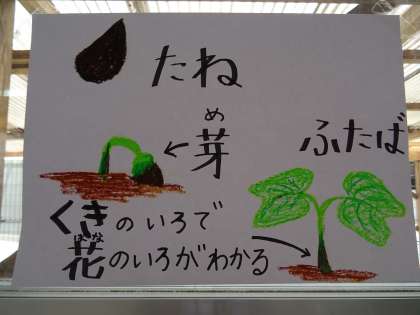 たね
め
芽
ふたば
くきのいろで
はな
花のいろがわかる